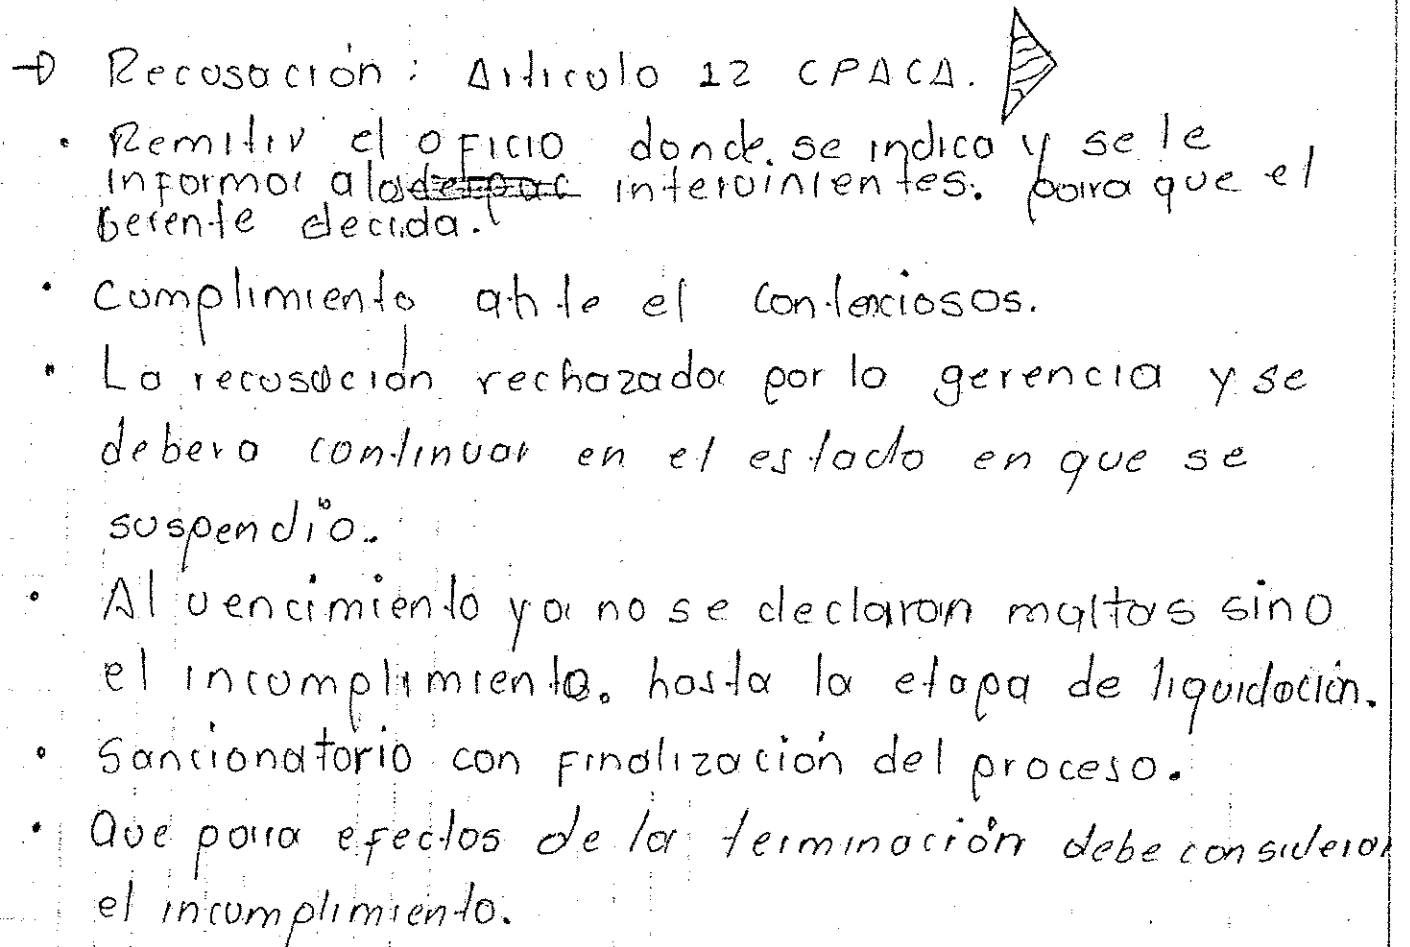 → Recusación: Articulo 12 CPACA.
• Remitir el oficio donde se indica y se le
informa a los intervinientes. para que el
Gerente decida.
• Cumplimiento ante el Contenciosos.
• La recusación rechazada por la gerencia y se
debera continuar en el estado en que se
suspendio.
• Al vencimiento ya no se declaran multas sino
el incumplimiento. hasta la etapa de liquidación.
• Sancionatorio con finalización del proceso.
• Que para efectos de la terminación debe considerar
el incumplimiento.